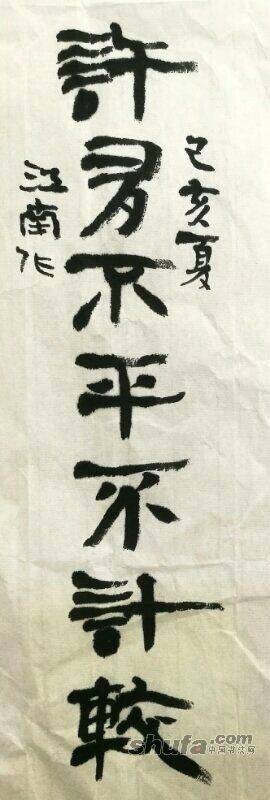 己亥夏
許多不平不計較
江南作
shufa.com
中国书法网